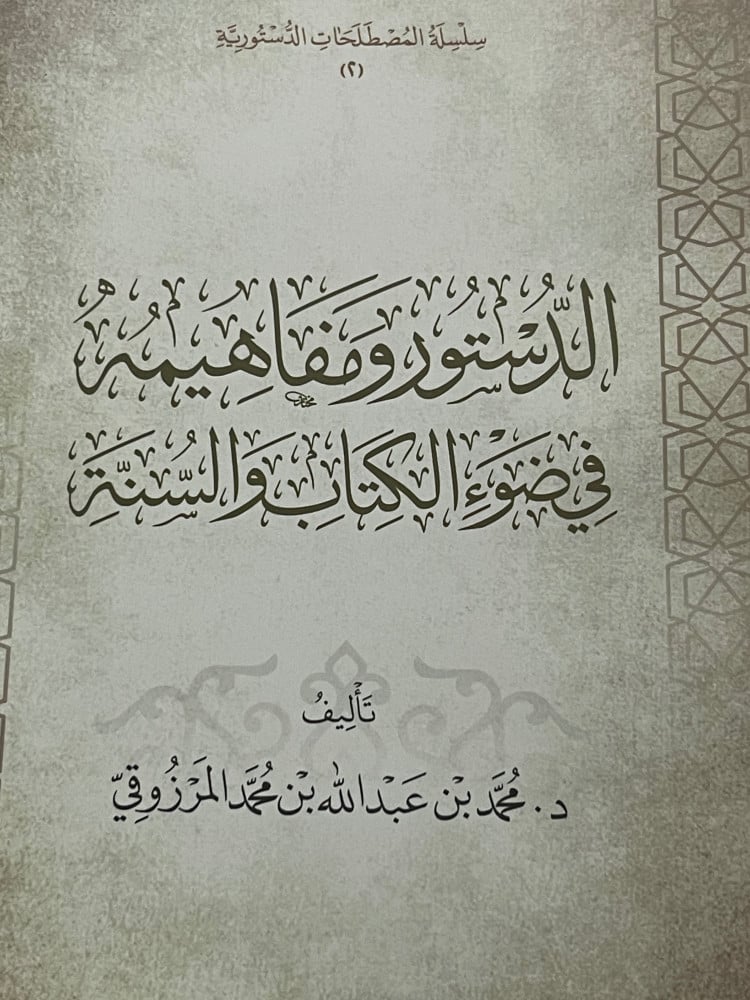 سِلْسِلَةُ المُصْطَلَحَاتِ الدُّسْتُورِيَّةِ
(٢)
الدُّسْتُورُ وَمَفَاهِيمُهُ
فِي ضَوْءِ الكِتَابِ وَالسُّنَّةِ
تَأْلِيفُ
د. مُحَمَّد بْن عَبْد اللّٰه بْن مُحَمَّد المَرْزُوقِيّ